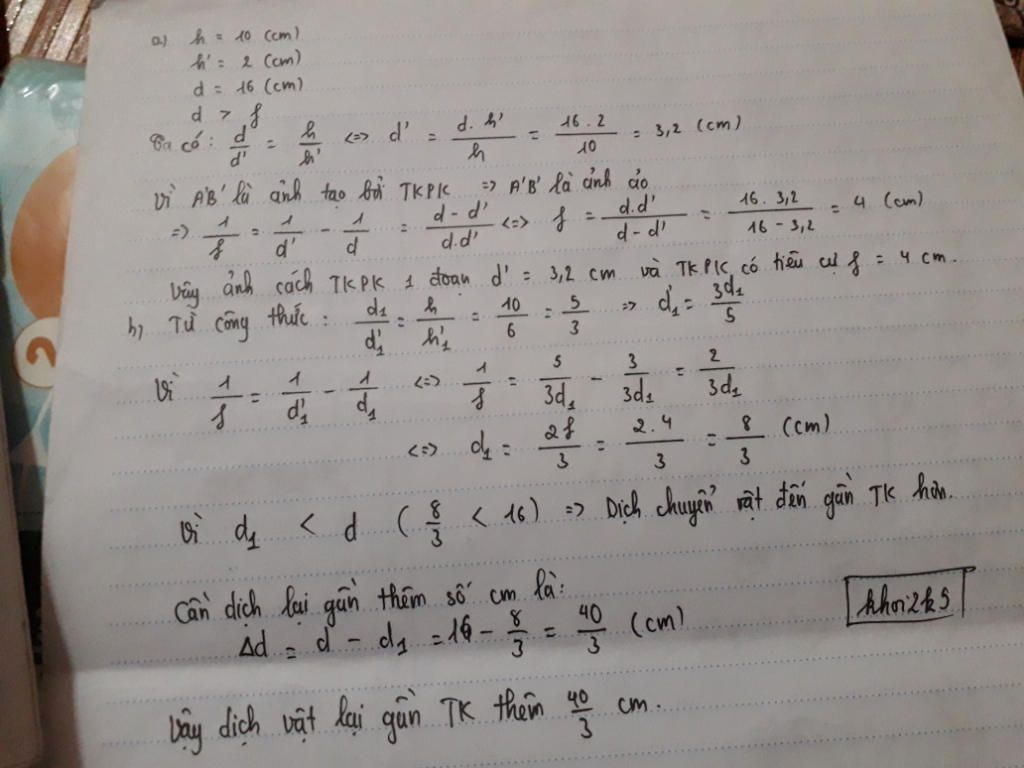 a) h = 10 (cm)
h' = 2 (cm)
d = 16 (cm)
d > f
Ta có: d/d' = h/h' <=> d' = d.h'/h = 16.2/10 = 3,2 (cm)
Vì A'B' là ảnh tạo bởi TKPK => A'B' là ảnh ảo
=> 1/f = 1/d' - 1/d = d-d'/d.d' <=> f = d.d'/d-d' = 16.3,2/16-3,2 = 4 (cm)
Vậy ảnh cách TKPK 1 đoạn d' = 3,2 cm và TKPK có tiêu cự f = 4 cm.
b) Từ công thức: d1/d'1 = h/h'1 = 10/6 = 5/3 => d'1 = 3d1/5
Vì 1/f = 1/d'1 - 1/d1 <=> 1/f = 5/3d1 - 3/3d1 = 2/3d1
<=> d1 = 2f/3 = 2.4/3 = 8/3 (cm)
Vì d1 < d (8/3 < 16) => Dịch chuyển vật đến gần TK hơn.
Cần dịch lại gần thêm số cm là:
Δd = d - d1 = 16 - 8/3 = 40/3 (cm)
khoi2k5
Vậy dịch vật lại gần TK thêm 40/3 cm.